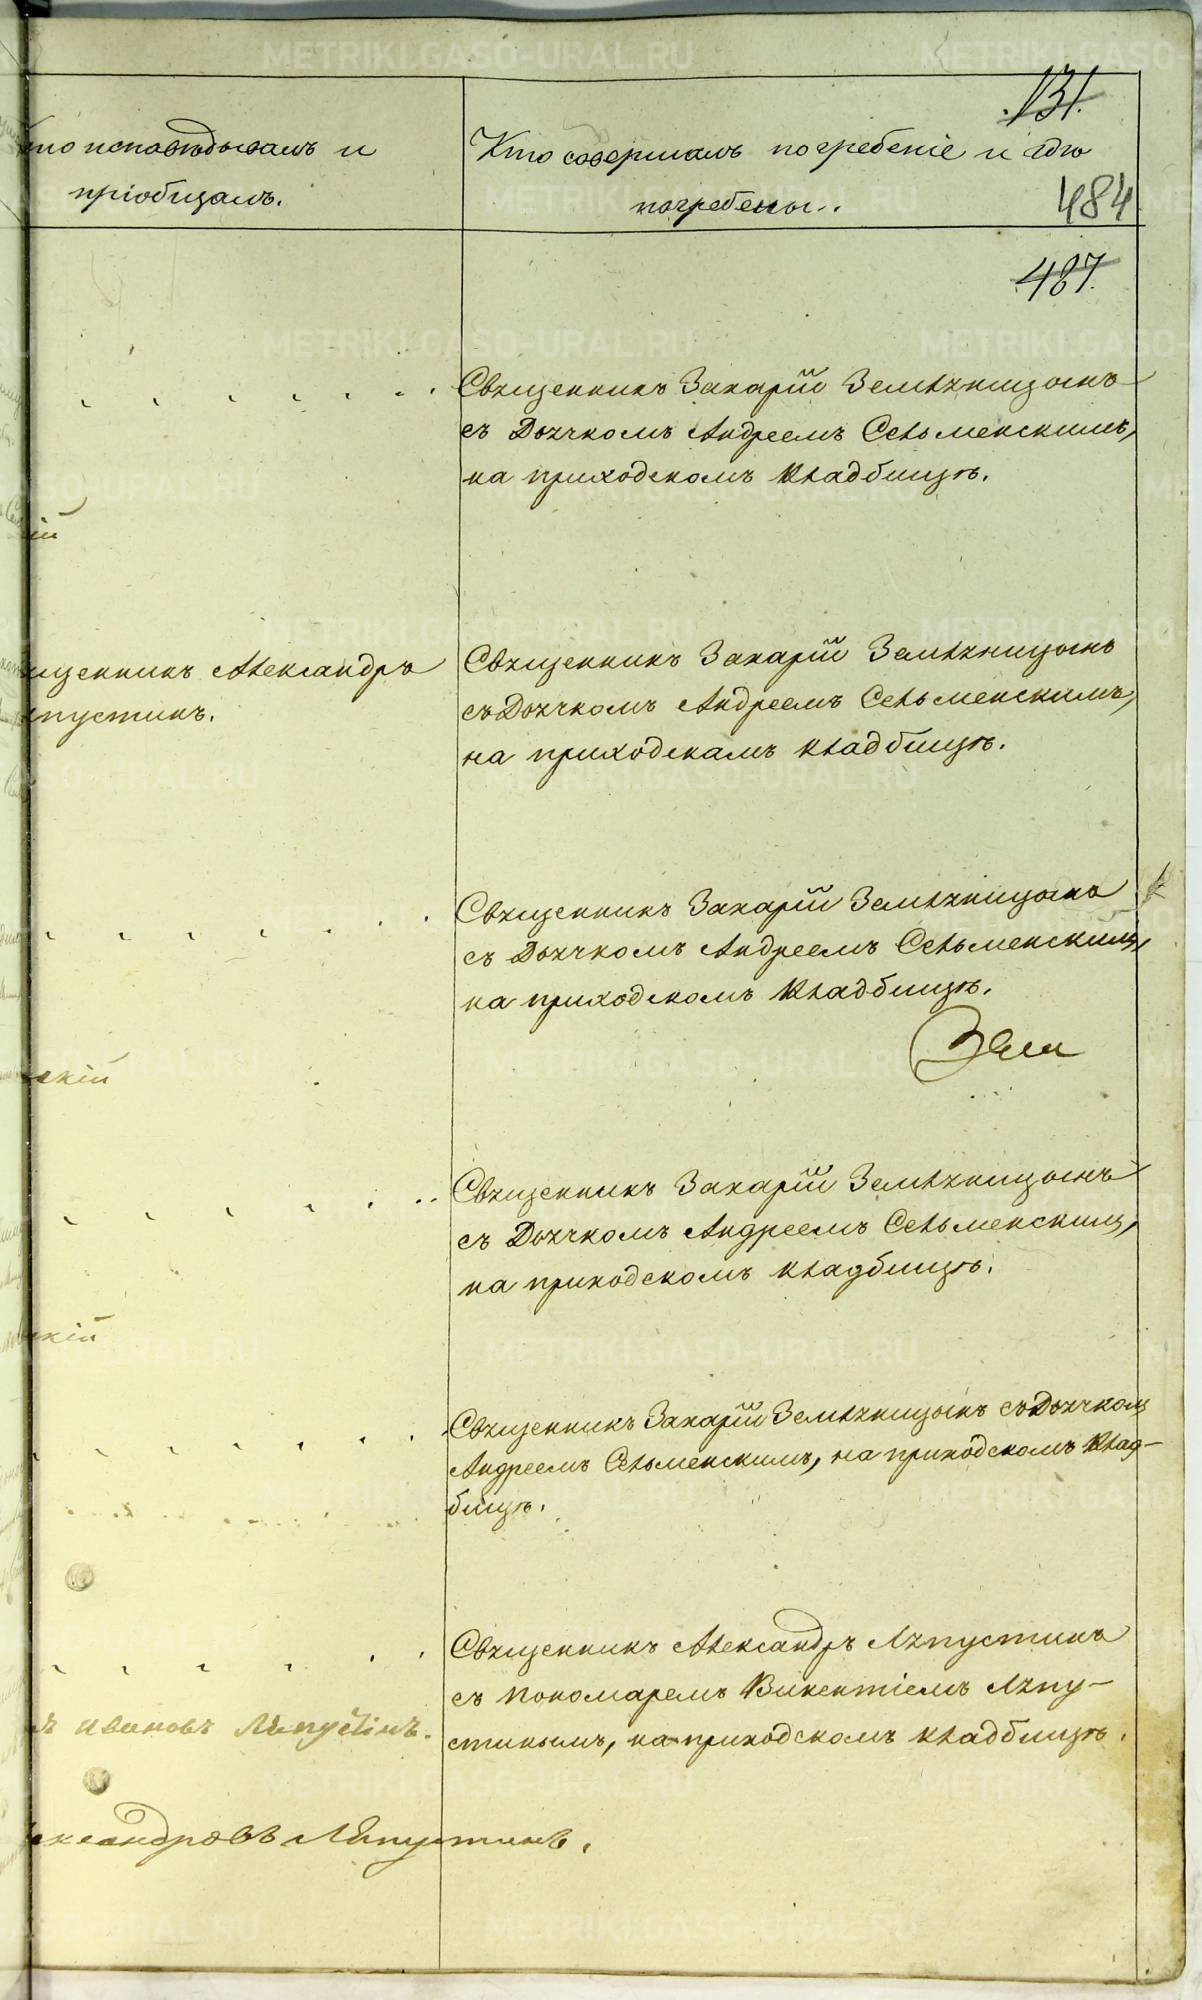 131.
Кто исповѣдывалъ и
пріобщалъ.
Кто совершалъ погребеніе и гдѣ
погребены.
484
487.
Священникъ Захарій Земляницынъ
съ Дьячкомъ Андреемъ Сельменскимъ,
на приходскомъ кладбищѣ.
ій
щенникъ Александръ
пустинъ.
Священникъ Захарій Земляницынъ
съ Дьячкомъ Андреемъ Сельменскимъ,
на приходскамъ кладбищѣ.
Священникъ Захарій Земляницынъ
съ Дьячкомъ Андреемъ Сельменскимъ,
на приходскомъ кладбищѣ.
Зем
скій
Священникъ Захарій Земляницынъ
съ Дьячкомъ Андреемъ Сельменскимъ,
на приходскомъ кладбищѣ.
скій
Священникъ Захарій Земляницынъ съ Дьячкомъ
Андреемъ Сельменскимъ, на приходскомъ клад-
бищѣ.
Священникъ Александръ Ляпустинъ
съ пономаремъ Викентіемъ Ляпу-
стинымъ, на приходскомъ кладбищѣ.
Ивановъ Ляпустинъ.
ександровъ Ляпустинъ.
METRIKI.GASO-URAL.RU